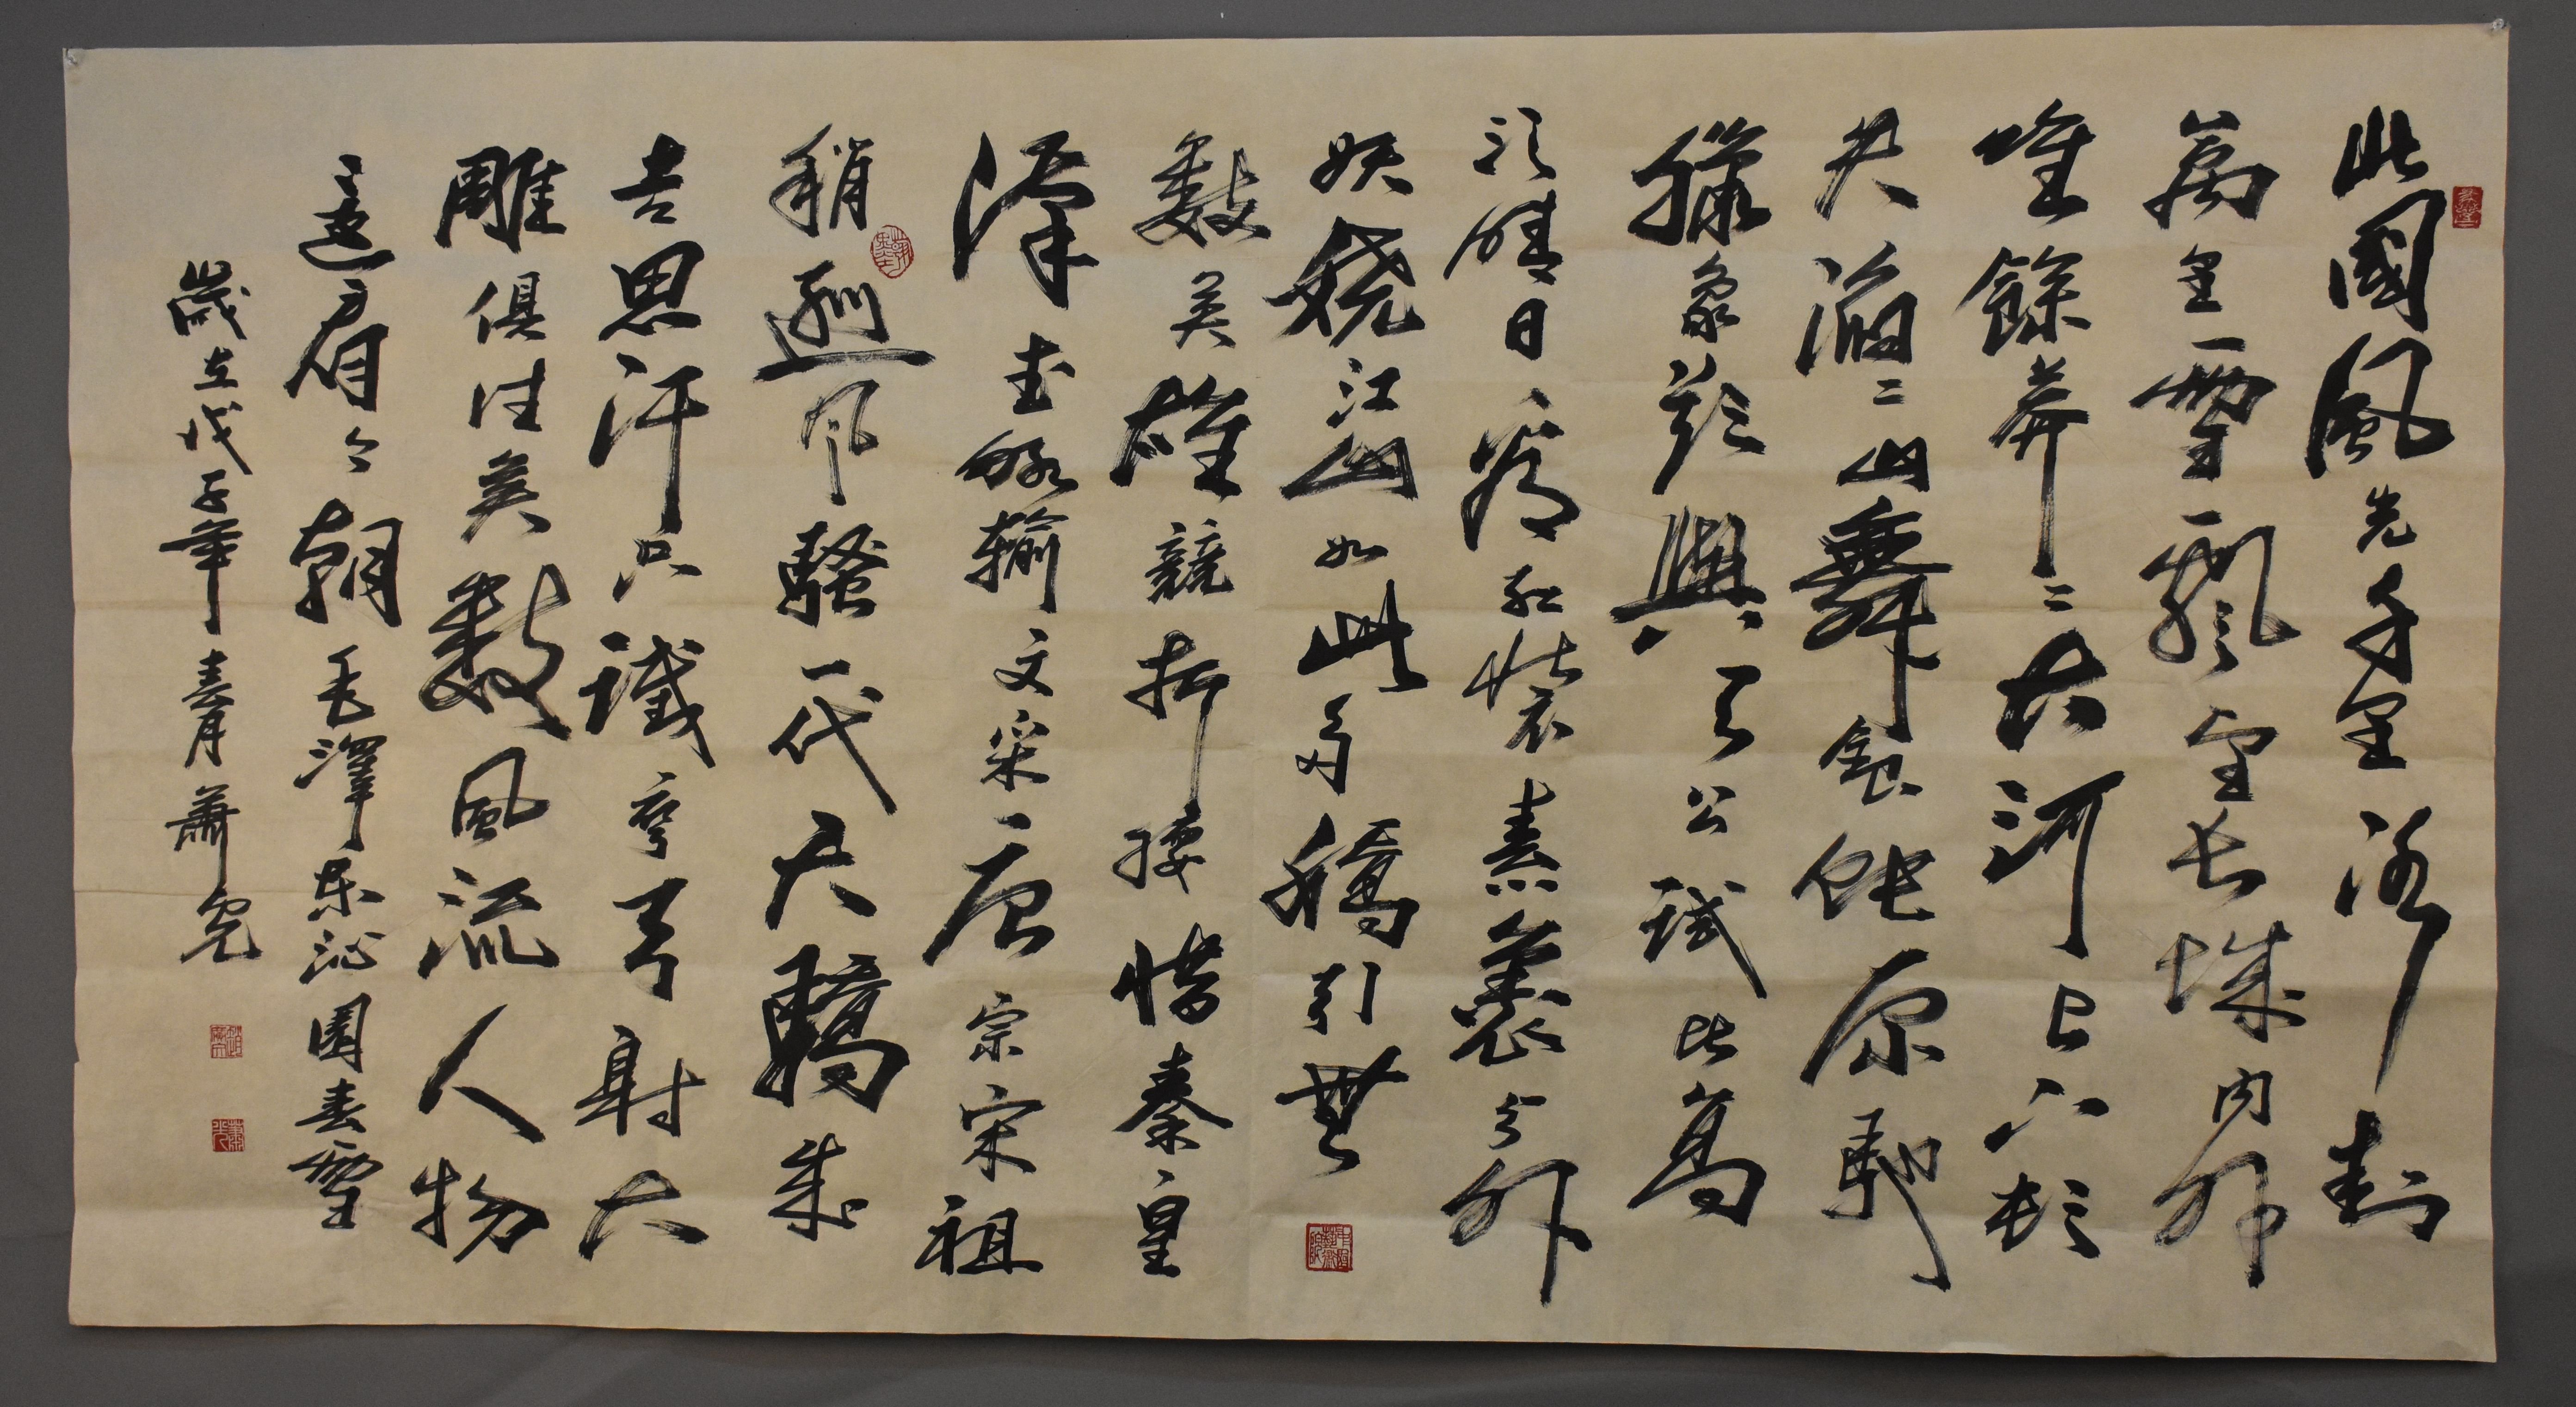 北國風光千里冰封
萬里雪飄望長城內外
唯餘莽々大河上下頓
失滔々山舞銀蛇原馳
蠟象欲與天公試比高
須晴日看紅裝素裹分外
妖嬈江山如此多嬌引無
數英雄競折腰惜秦皇
漢武略輸文采唐宗宋祖
稍遜風騷一代天驕成
吉思汗只識彎弓射大
雕俱往矣數風流人物
還看今朝毛澤東沁園春雪
歲在戊子年春月蕭